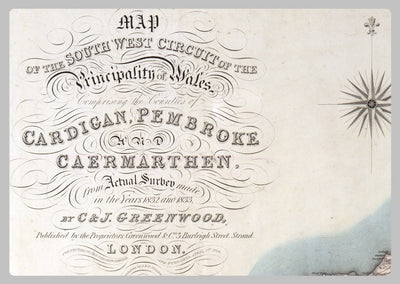 MAP
OF THE SOUTH WEST CIRCUIT OF THE
Principality of Wales,
Comprising the Counties of
CARDIGAN, PEMBROKE
AND
CAERMARTHEN,
from Actual Survey made
in the Years 1832 and 1833,
BY C & J. GREENWOOD,
Published by the Proprietors, Greenwood & Co. 5, Burleigh Street, Strand.
LONDON.